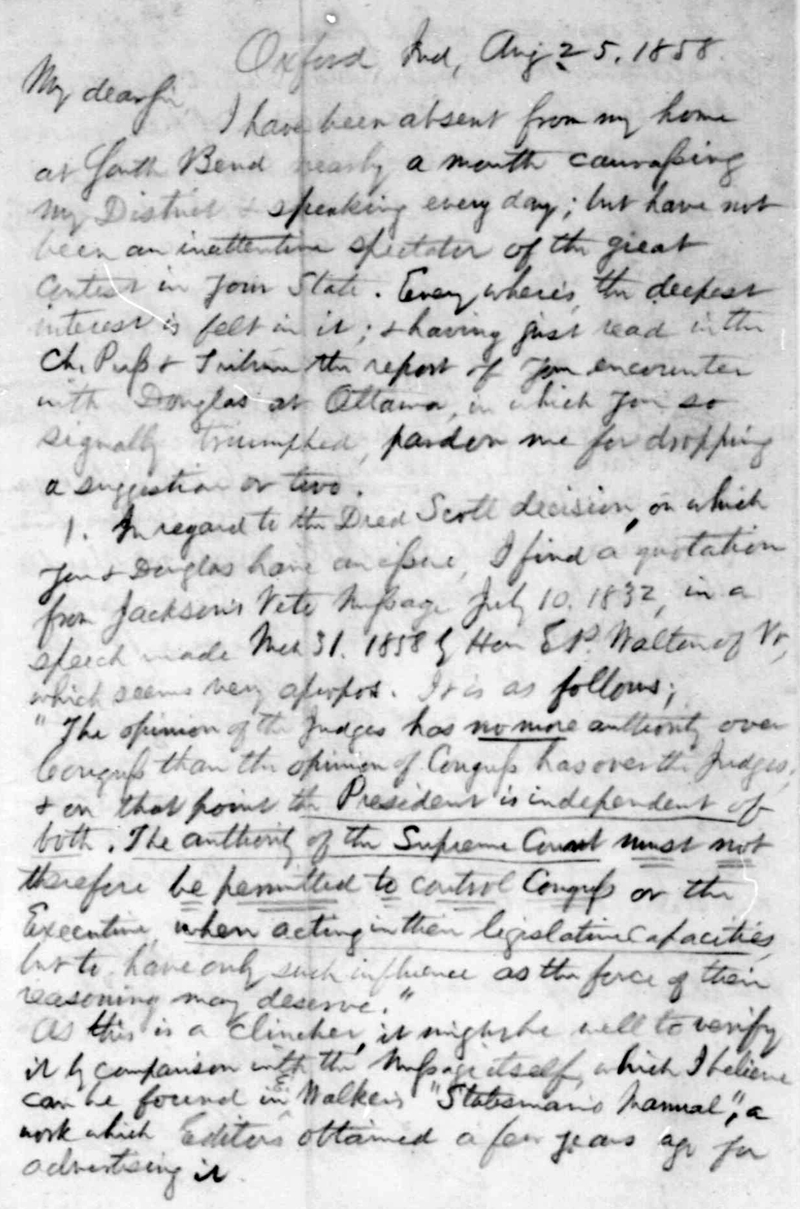 Oxford, Ind, Aug 25, 1858.
My dear Sir
I have been absent from my home
at South Bend nearly a month canvassing
my District & speaking every day; but have not
been an inattentive spectator of the great
Contest in your State. Every where is, the deepest
interest is felt in it; & having just read in the
Ch. Press & Tribune the report of your encounter
with Douglas at Ottawa, in which you so
signally triumphed, pardon me for dropping
a suggestion or two.
1. In regard to the Dred Scott decision, on which
you & Douglas have an issue, I find a quotation
from Jackson's Veto Message July 10. 1832, in a
speech made Mch 31. 1858 by Hon E. P. Walton of Vt,
which seems very apropos. It is as follows;
"The opinion of the Judges has no more authority over
Congress than the opinion of Congress has over the Judges;
& on that point the President is independent of
both. The authority of the Supreme Court must not
therefore be permitted to control Congress or the
Executive, when acting in their legislative capacities,
but to have only such influence as the force of their
reasoning may deserve."
As this is a clincher, it might be well to verify
it by comparison with the Message itself, which I believe
can be found in Walker's "Statesman's Manual", a
work which Editors obtained a few years ago for
advertising it.